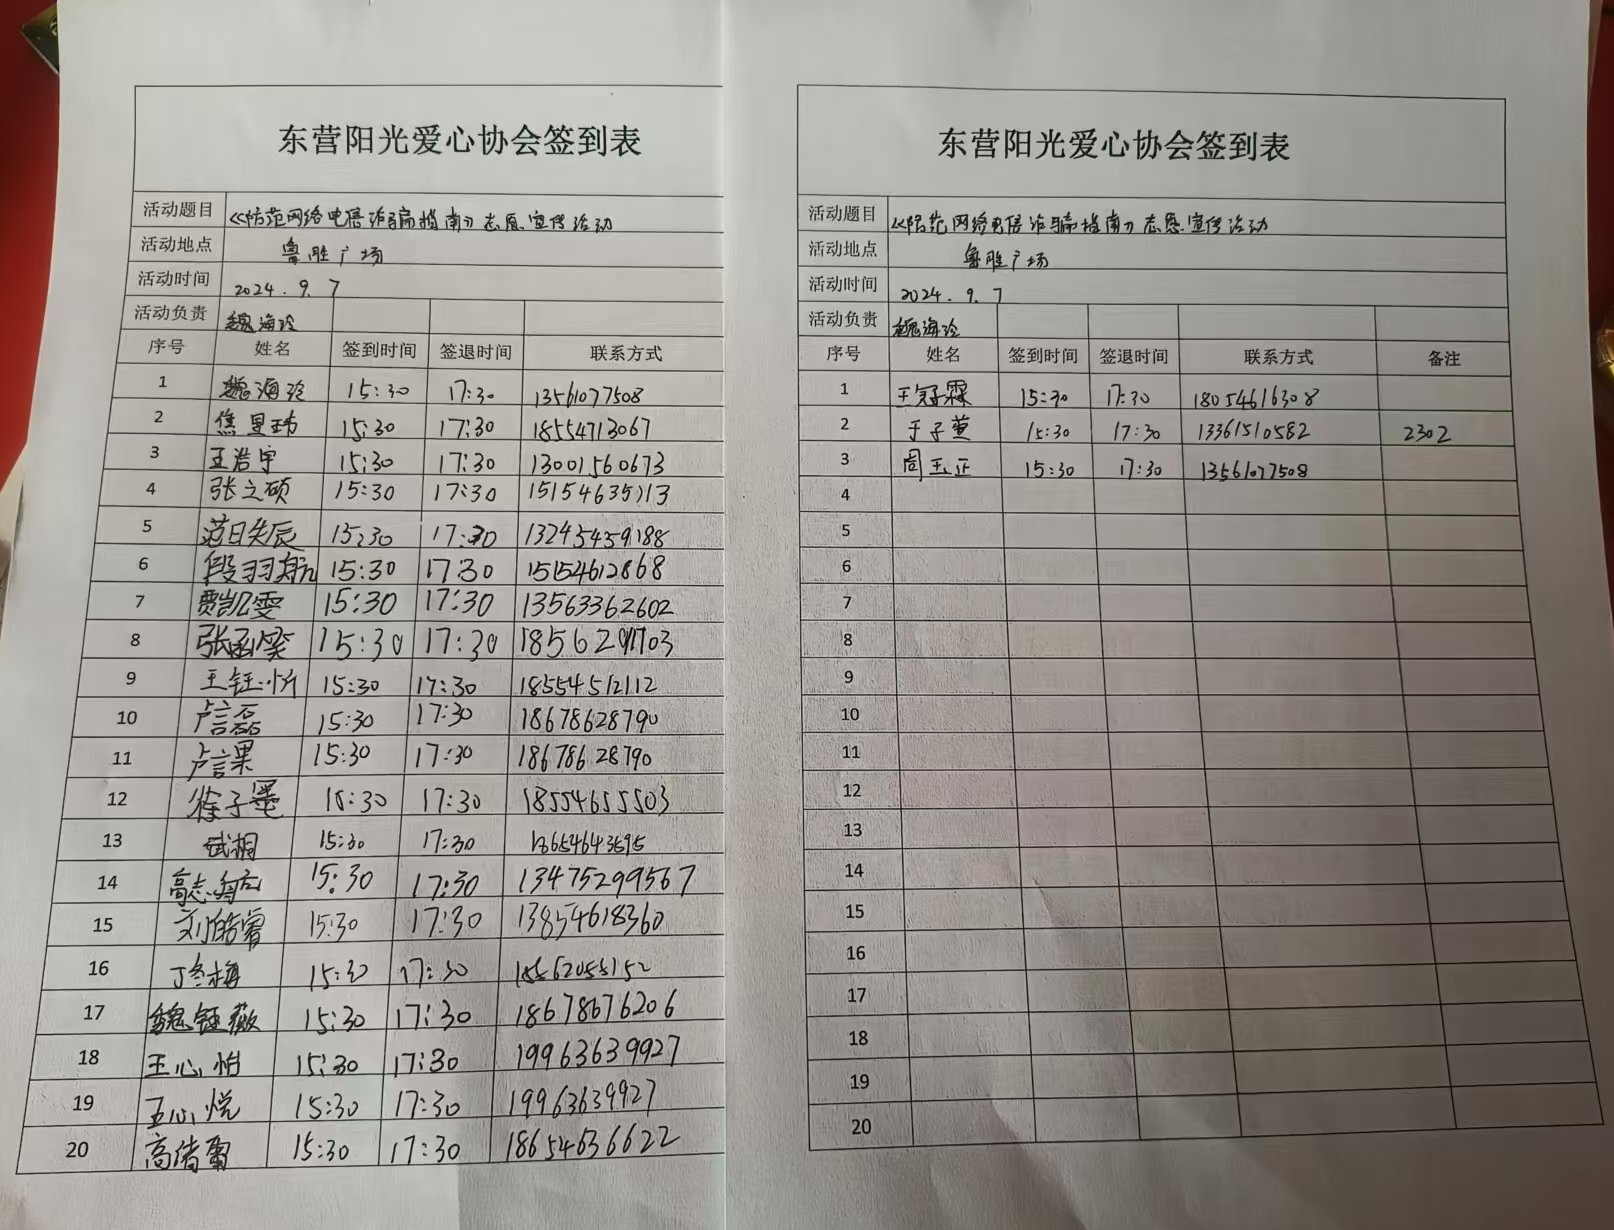 东营阳光爱心协会签到表
活动题目 《防范网络电信诈骗指南》志愿宣传活动
活动地点 鲁胜广场
活动时间 2024.9.7
活动负责 魏海玲
序号 姓名 签到时间 签退时间 联系方式
1 魏海玲 15:30 17:30 13561077508
2 焦昱玮 15:30 17:30 18554713067
3 王浩宇 15:30 17:30 13001560673
4 张之硕 15:30 17:30 15154635113
5 范日辰 15:30 17:30 13245459188
6 段羽航 15:30 17:30 15154612868
7 贾凯雯 15:30 17:30 13563362602
8 张函 15:30 17:30
9 王钰忻 15:30 17:30 18554512112
10 卢言磊 15:30 17:30 18678628790
11 卢言果 15:30 17:30 18678628790
12 徐子墨 15:30 17:30 18554655503
13 斌桐 15:30 17:30 18654643595
14 高志航 15:30 17:30 13475299567
15 刘皓睿 15:30 17:30 13854618360
16 丁冬梅 15:30 17:30
17 魏钰薇 15:30 17:30 18678676206
18 王心怡 15:30 17:30 19963639927
19 王心悦 15:30 17:30 19963639927
20 高绪 15:30 17:30 18654636622
东营阳光爱心协会签到表
活动题目 《防范网络电信诈骗指南》志愿宣传活动
活动地点 鲁胜广场
活动时间 2024.9.7
活动负责 魏海玲
序号 姓名 签到时间 签退时间 联系方式 备注
1 王冠霖 15:30 17:30 18054616308
2 于子萱 15:30 17:30 13361510582 2302
3 周玉正 15:30 17:30 13561077508
4
5
6
7
8
9
10
11
12
13
14
15
16
17
18
19
20